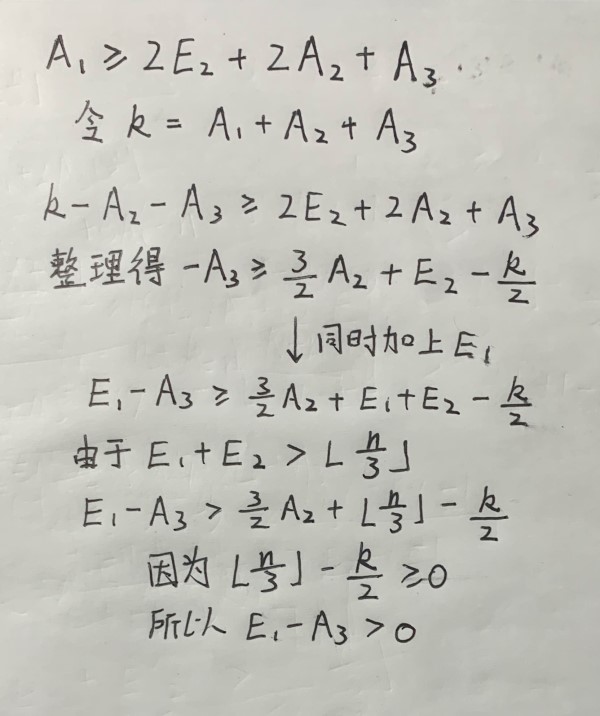 A₁ ≥ 2E₂ + 2A₂ + A₃
令 k = A₁ + A₂ + A₃
k - A₂ - A₃ ≥ 2E₂ + 2A₂ + A₃
整理得 -A₃ ≥ 3/2 A₂ + E₂ - k/2
↓ 同时加上 E₁
E₁ - A₃ ≥ 3/2 A₂ + E₁ + E₂ - k/2
由于 E₁ + E₂ > ⌊n/3⌋
E₁ - A₃ > 3/2 A₂ + ⌊n/3⌋ - k/2
因为 ⌊n/3⌋ - k/2 ≥ 0
所以 E₁ - A₃ > 0